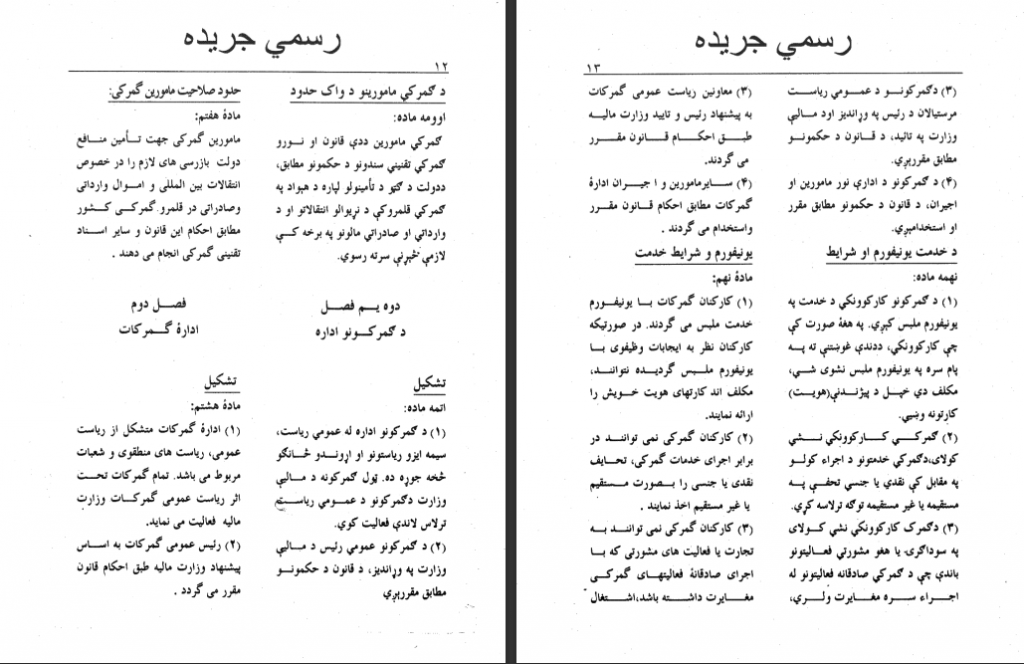 رسمي جريده
١٢
د ګمرکي مامورينو د واک حدود
اوومه ماده:
ګمرکي مامورين ددې قانون او نورو
ګمرکي تقنيني سندونو د حکمونو مطابق،
ددولت د ګټو د تأمينولو لپاره د هېواد په
ګمرکي قلمروکې د نړيوالو انتقالاتو او د
وارداتي او صادراتي مالونو په برخه کې
لازمې څېړنې سرته رسوي.
دوه يم فصل
د ګمرکونو اداره
تشکيل
اتمه ماده:
(١) د ګمرکونو اداره له عمومي رياست،
سيمه ايزو رياستونو او اړوندو څانګو
څخه جوړه ده. ټول ګمرکونه د ماليې
وزارت دګمرکونو د عمومي رياست
ترلاس لاندې فعاليت کوي.
(٢) د ګمرکونو عمومي رئيس د ماليې
وزارت په وړانديز، د قانون د حکمونو
مطابق مقررېږي
حدود صلاحيت مامورين گمرکی:
مادۀ هفتم:
مامورين گمرکی جهت تأمين منافع
دولت بازرسی های لازم را در خصوص
انتقالات بين المللی و اموال وارداتی
وصادراتی در قلمرو گمرکی کشور
مطابق احکام اين قانون و ساير اسناد
تقنينی گمرکی انجام می دهند .
فصل دوم
ادارۀ گمرکات
تشکيل
مادۀ هشتم:
(١) ادارۀ گمرکات متشکل از رياست
عمومی، رياست های منطقوی و شعبات
مربوط می باشد. تمام گمرکات تحت
اثر رياست عمومی گمرکات وزارت
ماليه فعاليت می نمايد.
(٢) رئيس عمومی گمرکات به اساس
پيشنهاد وزارت ماليه طبق احکام قانون
مقرر می گردد .
رسمي جريده
١٣
(٣) دګمرکونو د عمومي رياست
مرستيالان د رئيس په وړانديز اود ماليې
وزارت په تائيد، د قانون د حکمونو
مطابق مقررېږي.
(۴) د ګمرکونو د ادارې نور مامورين او
اجيران، د قانون د حکمونو مطابق مقرر
او استخدامېږي.
د خدمت يونيفورم او شرايط
نهمه ماده:
(١) د ګمرکونو کارکوونکي د خدمت په
يونيفورم ملبس کېږي. په هغۀ صورت کې
چې کارکوونکي، ددندې غوښتنې ته په
پام سره په يونيفورم ملبس نشوی شي،
مکلف دي خپل د پيژندنې(هويت)
کارتونه وښيي.
(٢) ګمرکي کارکوونکي نشي
کولای،دګمرکي خدمتونو د اجراء کولو
په مقابل کې نقدي يا جنسي تحفې په
مستقيمه يا غير مستقيمه توګه ترلاسه کړي.
(٣) دګمرک کارکوونکي نشي کولای
په سوداګرۍ يا هغو مشورتي فعاليتونو
باندې چې د ګمرکي صادقانه فعاليتونو له
اجراء سره مغايرت ولري،
(٣) معاونين رياست عمومی گمرکات
به پيشنهاد رئيس و تاييد وزارت ماليه
طبق احکام قانون مقرر
می گردند.
(۴) سايرمامورين و اجيران ادارۀ
گمرکات مطابق احکام قانون مقرر
واستخدام می گردند .
يونيفورم و شرايط خدمت
مادۀ نهم:
(١) کارکنان گمرکات با يونيفورم
خدمت ملبس می گردند. در صورتيکه
کارکنان نظر به ايجابات وظيفوی با
يونيفورم ملبس گرديده نتوانند،
مکلف اند کارتهای هويت خويش را
ارائه نمايند.
(٢) کارکنان گمرکی نمی توانند در
برابر اجرای خدمات گمرکی، تحايف
نقدی يا جنسی را بصورت مستقيم
يا غير مستقيم اخذ نمايند .
(٣) کارکنان گمرکی نمی توانند به
تجارت يا فعاليت های مشورتی که با
اجرای صادقانۀ فعاليتهای گمرکی
مغايرت داشته باشد،اشتغال